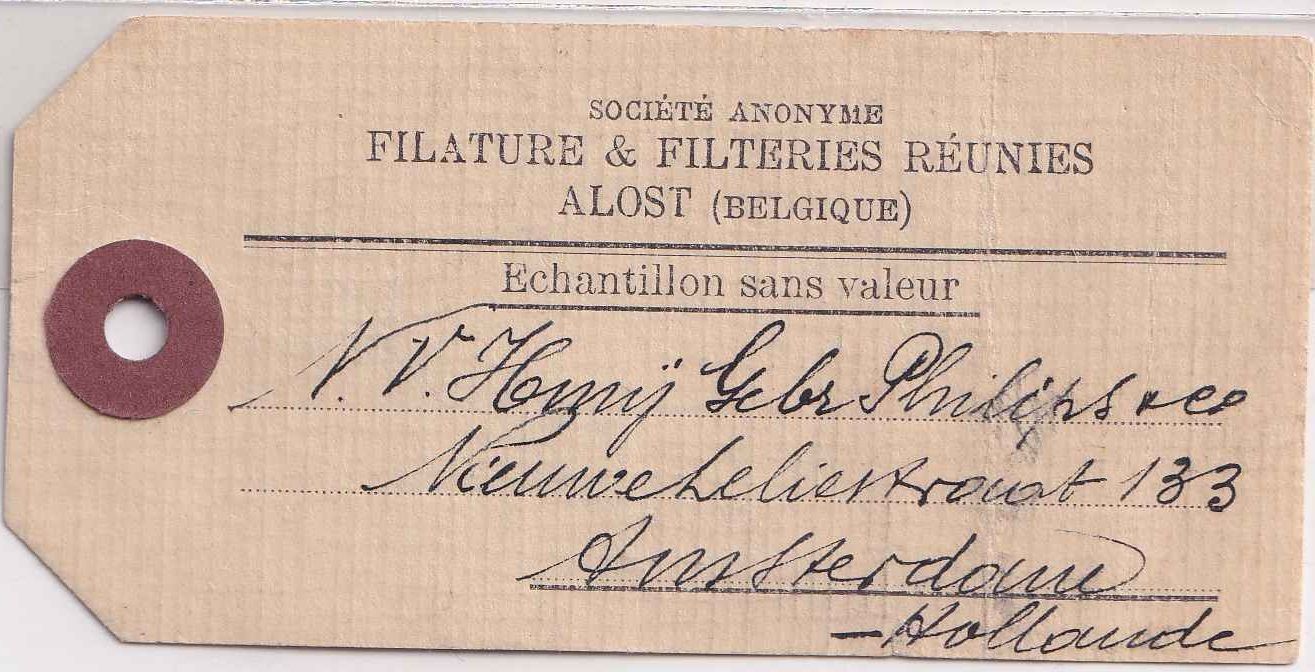 SOCIÉTÉ ANONYME
FILATURE & FILTERIES RÉUNIES
ALOST (BELGIQUE)
Echantillon sans valeur
N.V. Hmij Gebr Philips & Co
Nieuwe Leliestraat 133
Amsterdam
- Hollande